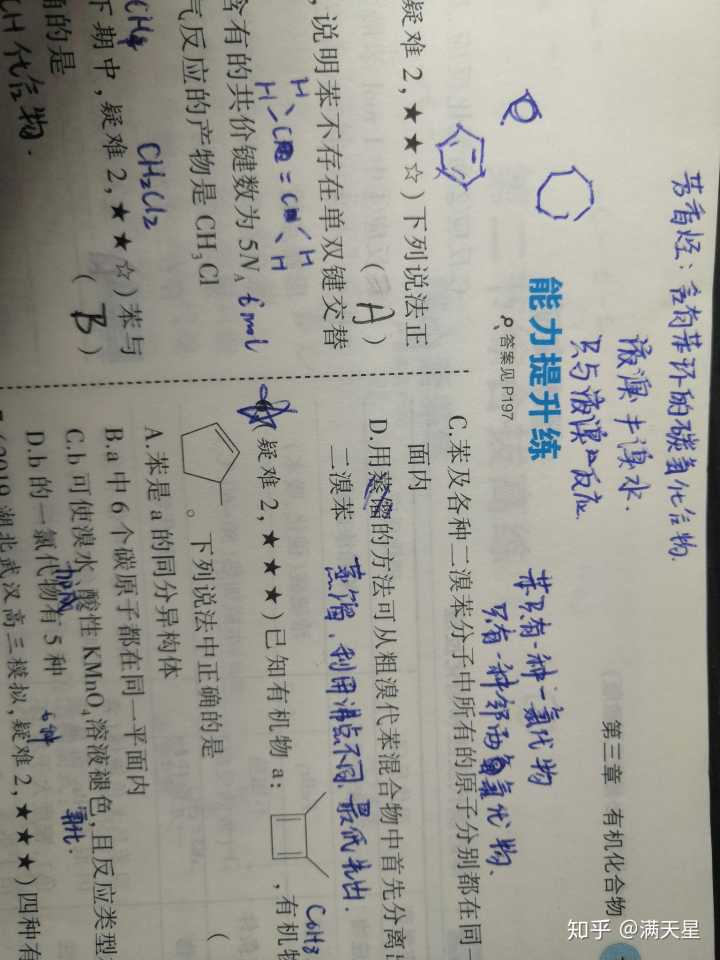 芳香烃：含有苯环的碳氢化合物
液溴 溴水.
只与液溴 反应
能力提升练
答案见P197
第三章 有机化合物
疑难2,★★☆)下列说法正
( A )
,说明苯不存在单双键交替
含有的共价键数为5N_A 6mol
气反应的产物是CH₃Cl
CH₂Cl₂
CH₄
下期中,疑难2,★★☆)苯与
的是 ( B )
CH 代合物.
苯只有一种一氯代物
只有一种邻 氯代物、
C.苯及各种二溴苯分子中所有的原子分别都在同一
面内
D.用蒸馏的方法可从粗溴代苯混合物中首先分离
二溴苯
蒸馏,利用沸点不同,最低先出.
(疑难2,★★★)已知有机物a:,有机物
C₆H₈
。下列说法中正确的是 (
A.苯是a的同分异构体
B.a中6个碳原子都在同一平面内
C.b可使溴水、酸性KMnO₄溶液褪色,且反应类型
加成
氧化.
D.b的一氯代物有5种
6种
(2019湖北武汉高三模拟,疑难2,★★★)四种有
知乎 @满天星